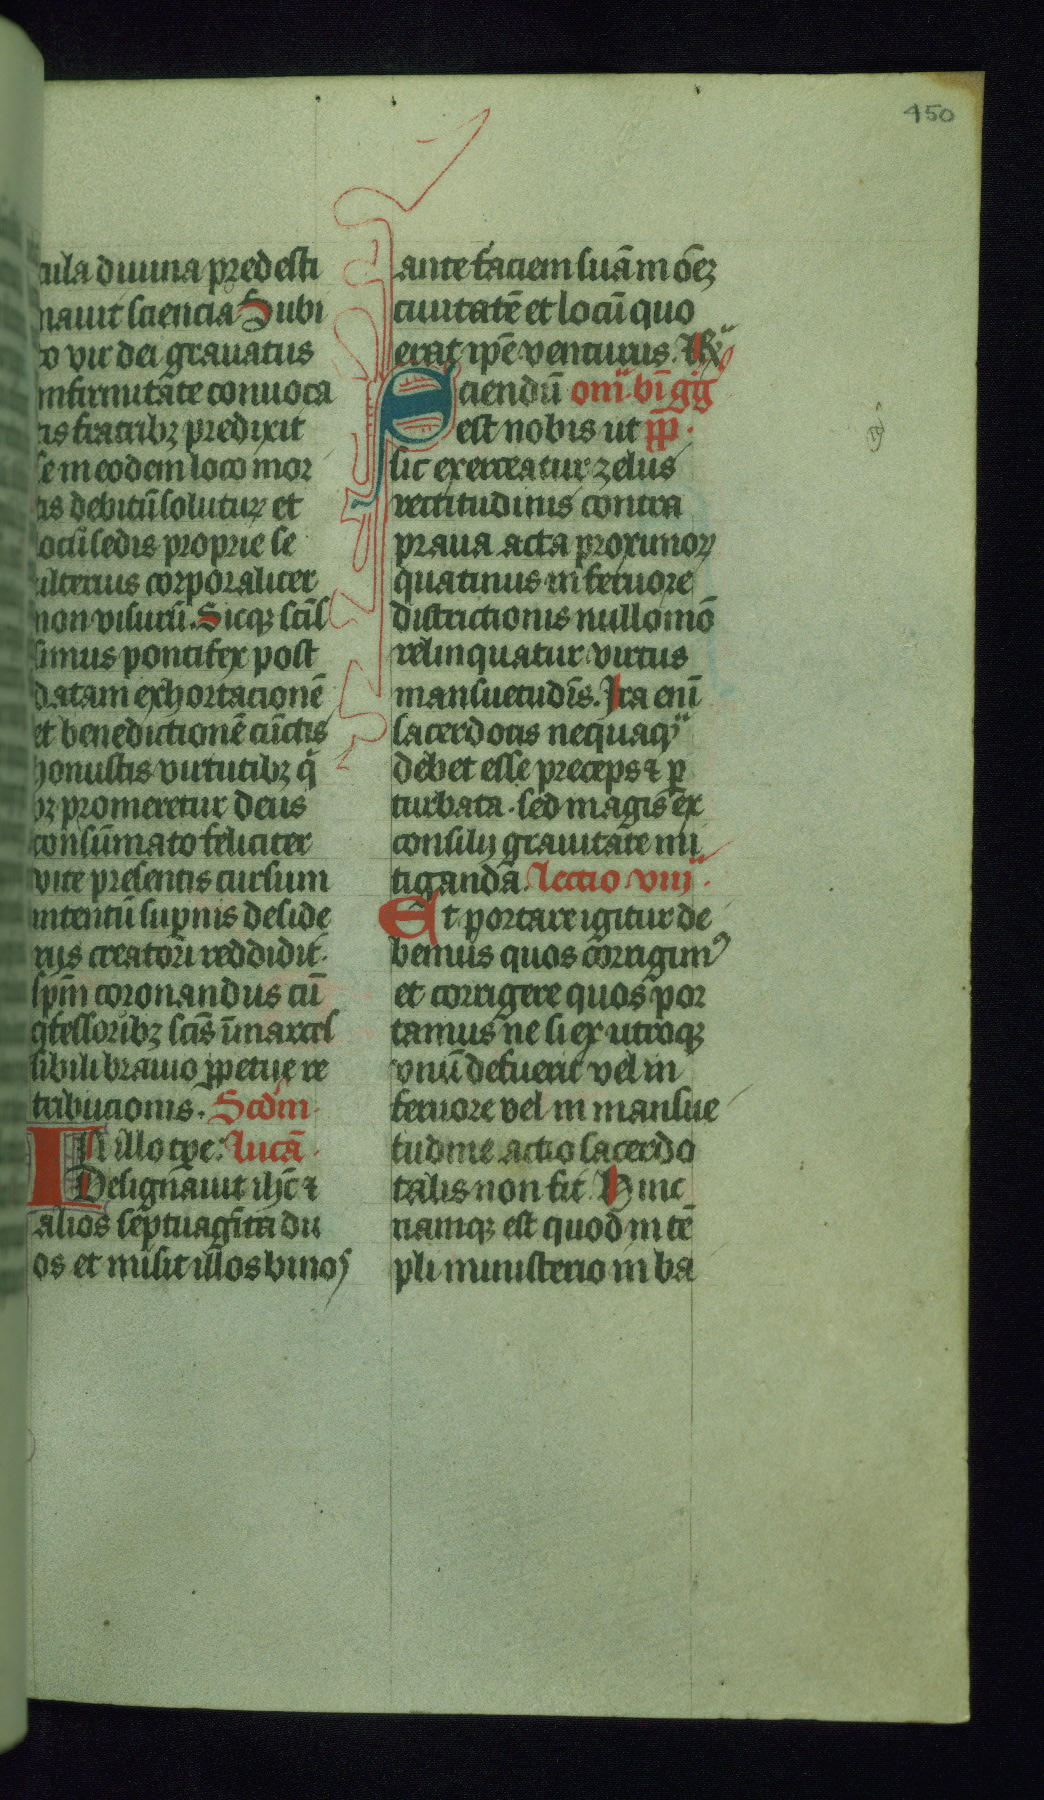 450
cula diuina predesti
nauit sciencia Subi
to vir dei grauatus
infirmitate conuoca
tis fratribꝫ predixit
se in eodem loco mor
tis debitū solutuꝝ et
locū sedis proprie se
ulterius corporaliter
non visurū. Sicqꝫ scīs
simus pontifex post
datam exhortacionē
et benedictionē cūctis
honustis virtutibꝫ q̇
bꝫ promeretur deus
consūmato feliciter
vite presentis cursum
intentū suꝑnis deside
riis creatori reddidit
spm̄ coronandus cū
ꝯfessoribꝫ scīs īmarces
sibili brauio ꝑpetue re
tribucionis. Scdm̄
IN illo tꝑe: lucā
Designauit ihc̄ ⁊
alios septuagīta du
os et misit illos binos
ante faciem suā in oēꝫ
ciuitatē et locū quo
erat ip̄e venturus. 
Sciendū om̄ bī ḡḡ
est nobis ut pp̄.
sic exerceatur zelus
rectitudinis contra
praua acta proximoꝝ
quatinus in feruore
districtionis nullomō
relinquatur virtus
mansuetudīs. Ira enī
sacerdotis nequaqᷓ
debet esse preceps ⁊ ꝑ
turbata. sed magis ex
consilij grauitate mi
tiganda. lectio viij.
Et portare igitur de
bemus quos corrigimꝰ
et corrigere quos por
tamus ne si ex utroqꝫ
vnū defuerit vel in
feruore vel in mansue
tudine actio sacerdo
talis non sit. Hinc
namqꝫ est quod in tē
pli ministerio in ba